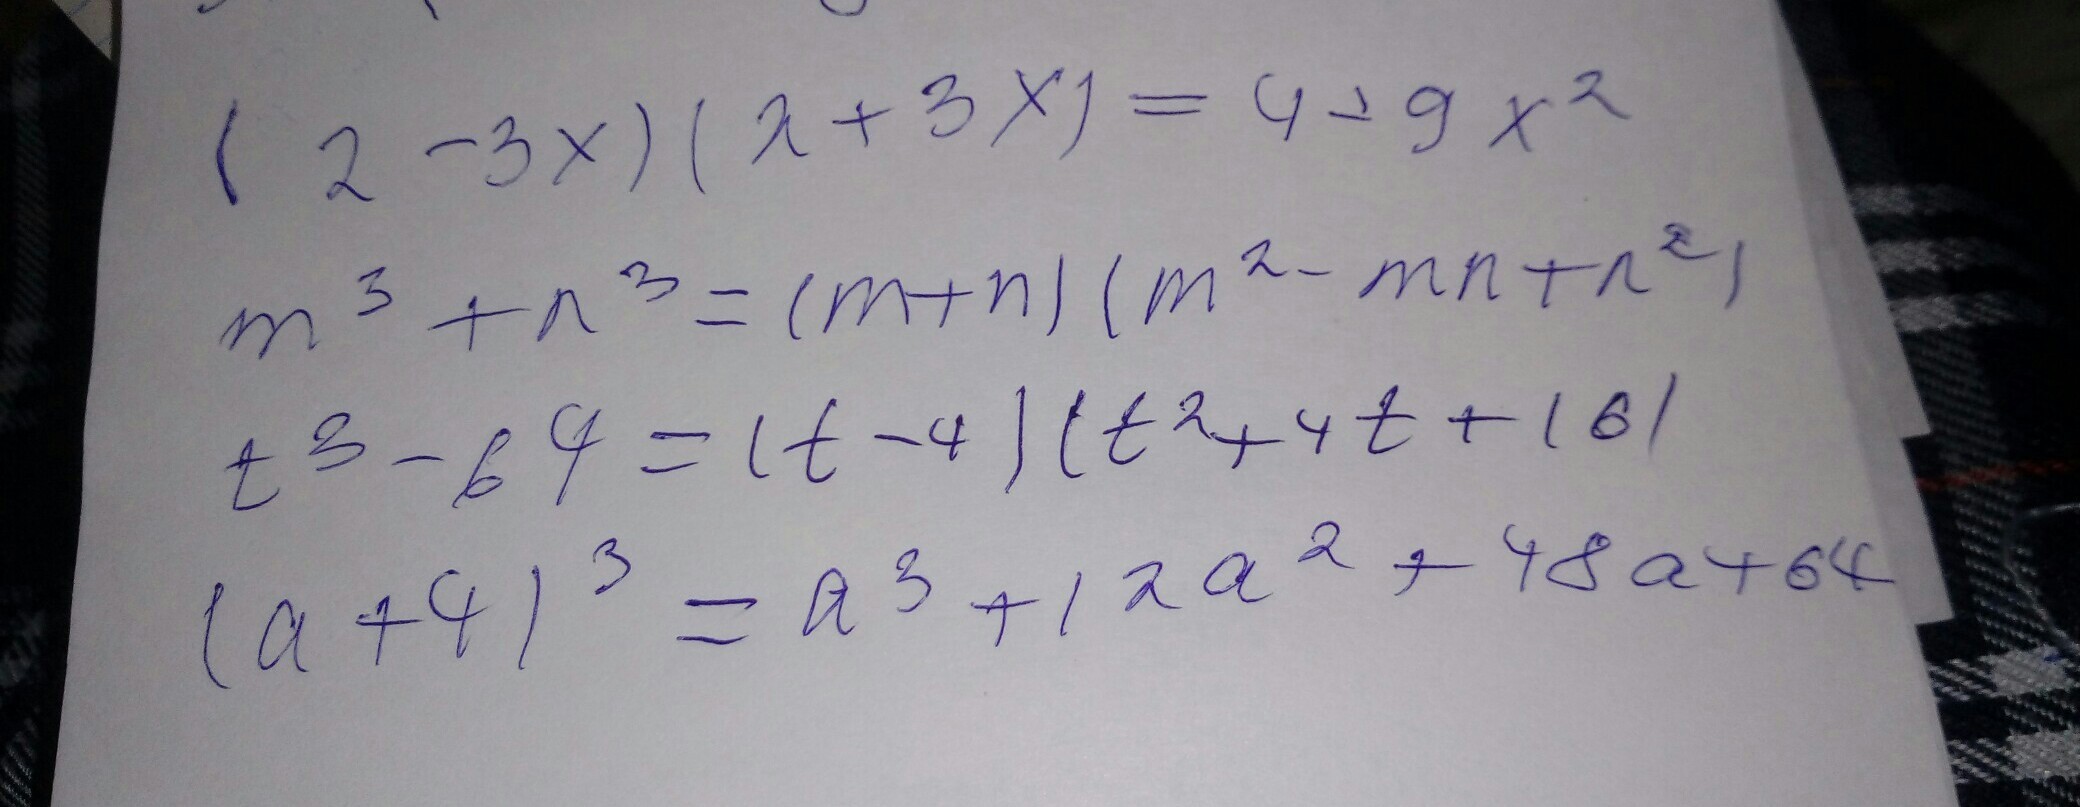 (2-3x)(2+3x)=4-9x²
m³+n³=(m+n)(m²-mn+n²)
t³-64=(t-4)(t²+4t+16)
(a+4)³=a³+12a²+48a+64